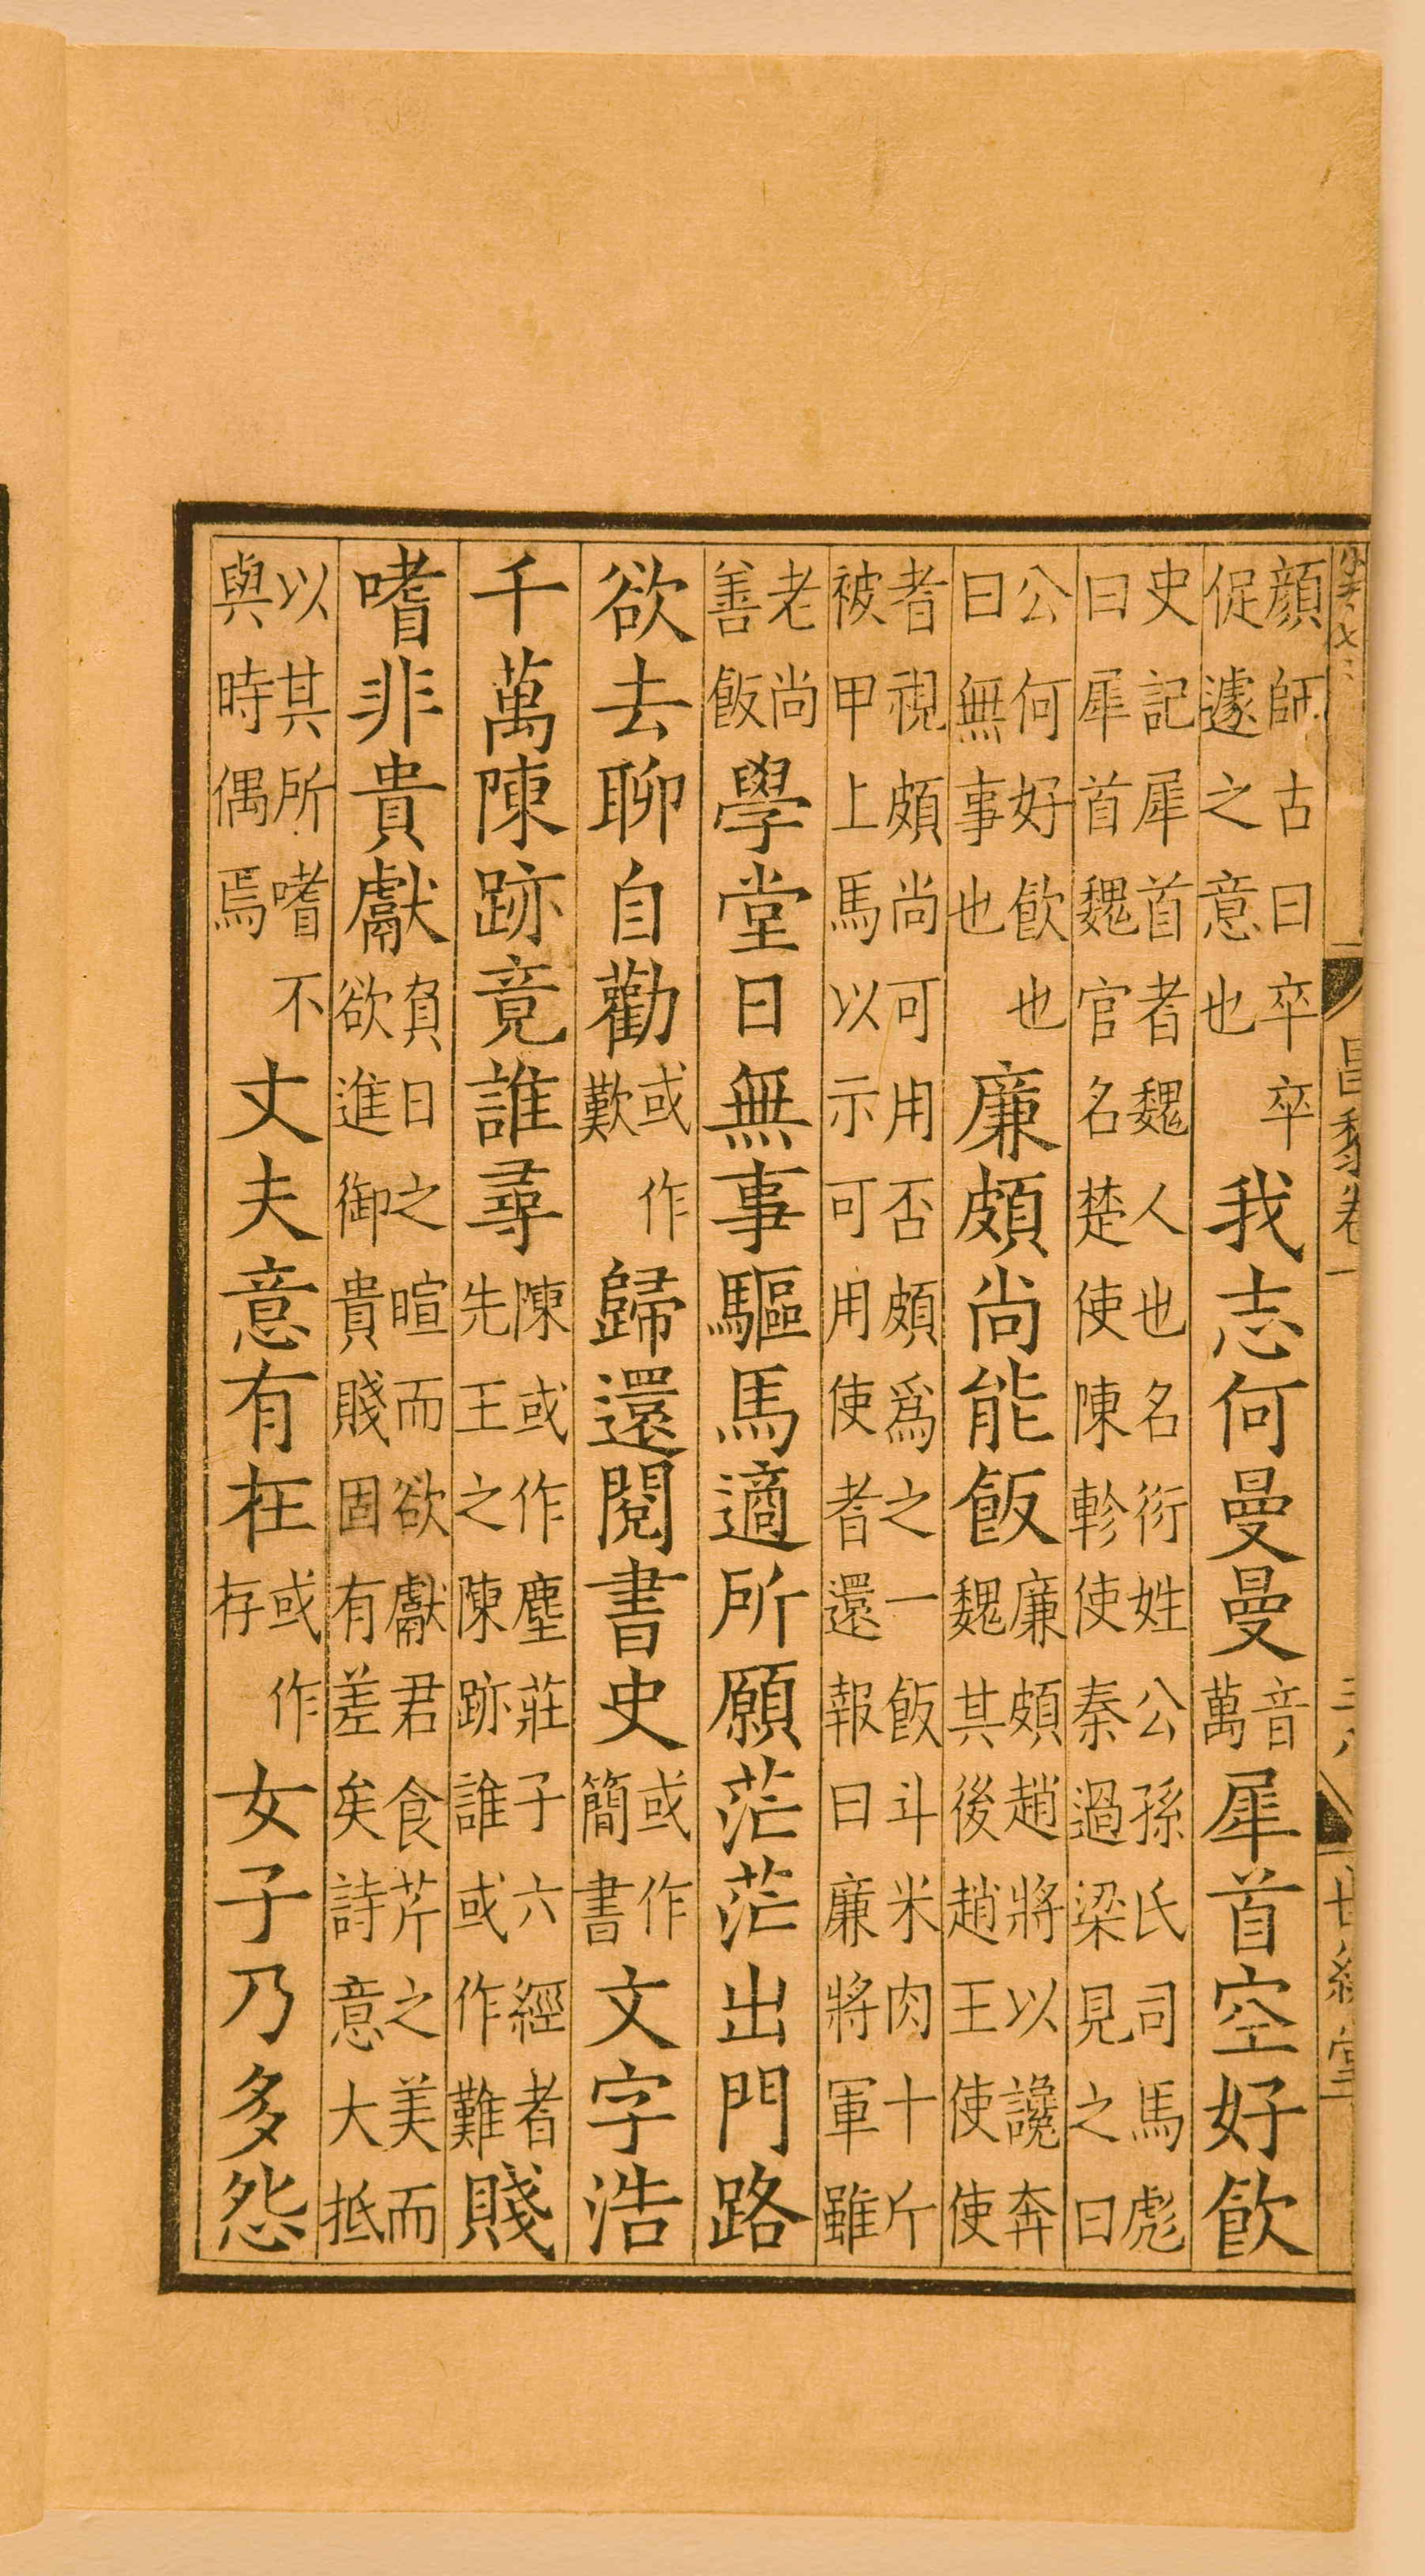 顔師古曰卒卒促遽之意也我志何曼曼音萬犀首空好飲
史記犀首者魏人也名衍姓公孫氏司馬彪曰犀首魏官名楚使陳軫使秦過梁見之曰
公何好飲也曰無事也廉頗尚能飯廉頗趙將以讒奔魏其後趙王使使
者視頗尚可用否頗爲之一飯斗米肉十斤被甲上馬以示可用使者還報曰廉將軍雖
老尚善飯學堂日無事驅馬適所願茫茫出門路
欲去聊自勸或作歎歸還閱書史或作簡書文字浩
千萬陳跡竟誰尋陳或作塵莊子六經者先王之陳跡誰或作難賤
嗜非貴獻負日之暄而欲獻君食芹之美而欲進御貴賤固有差矣詩意大抵
以其所嗜不與時偶焉丈夫意有在或作存女子乃多怨